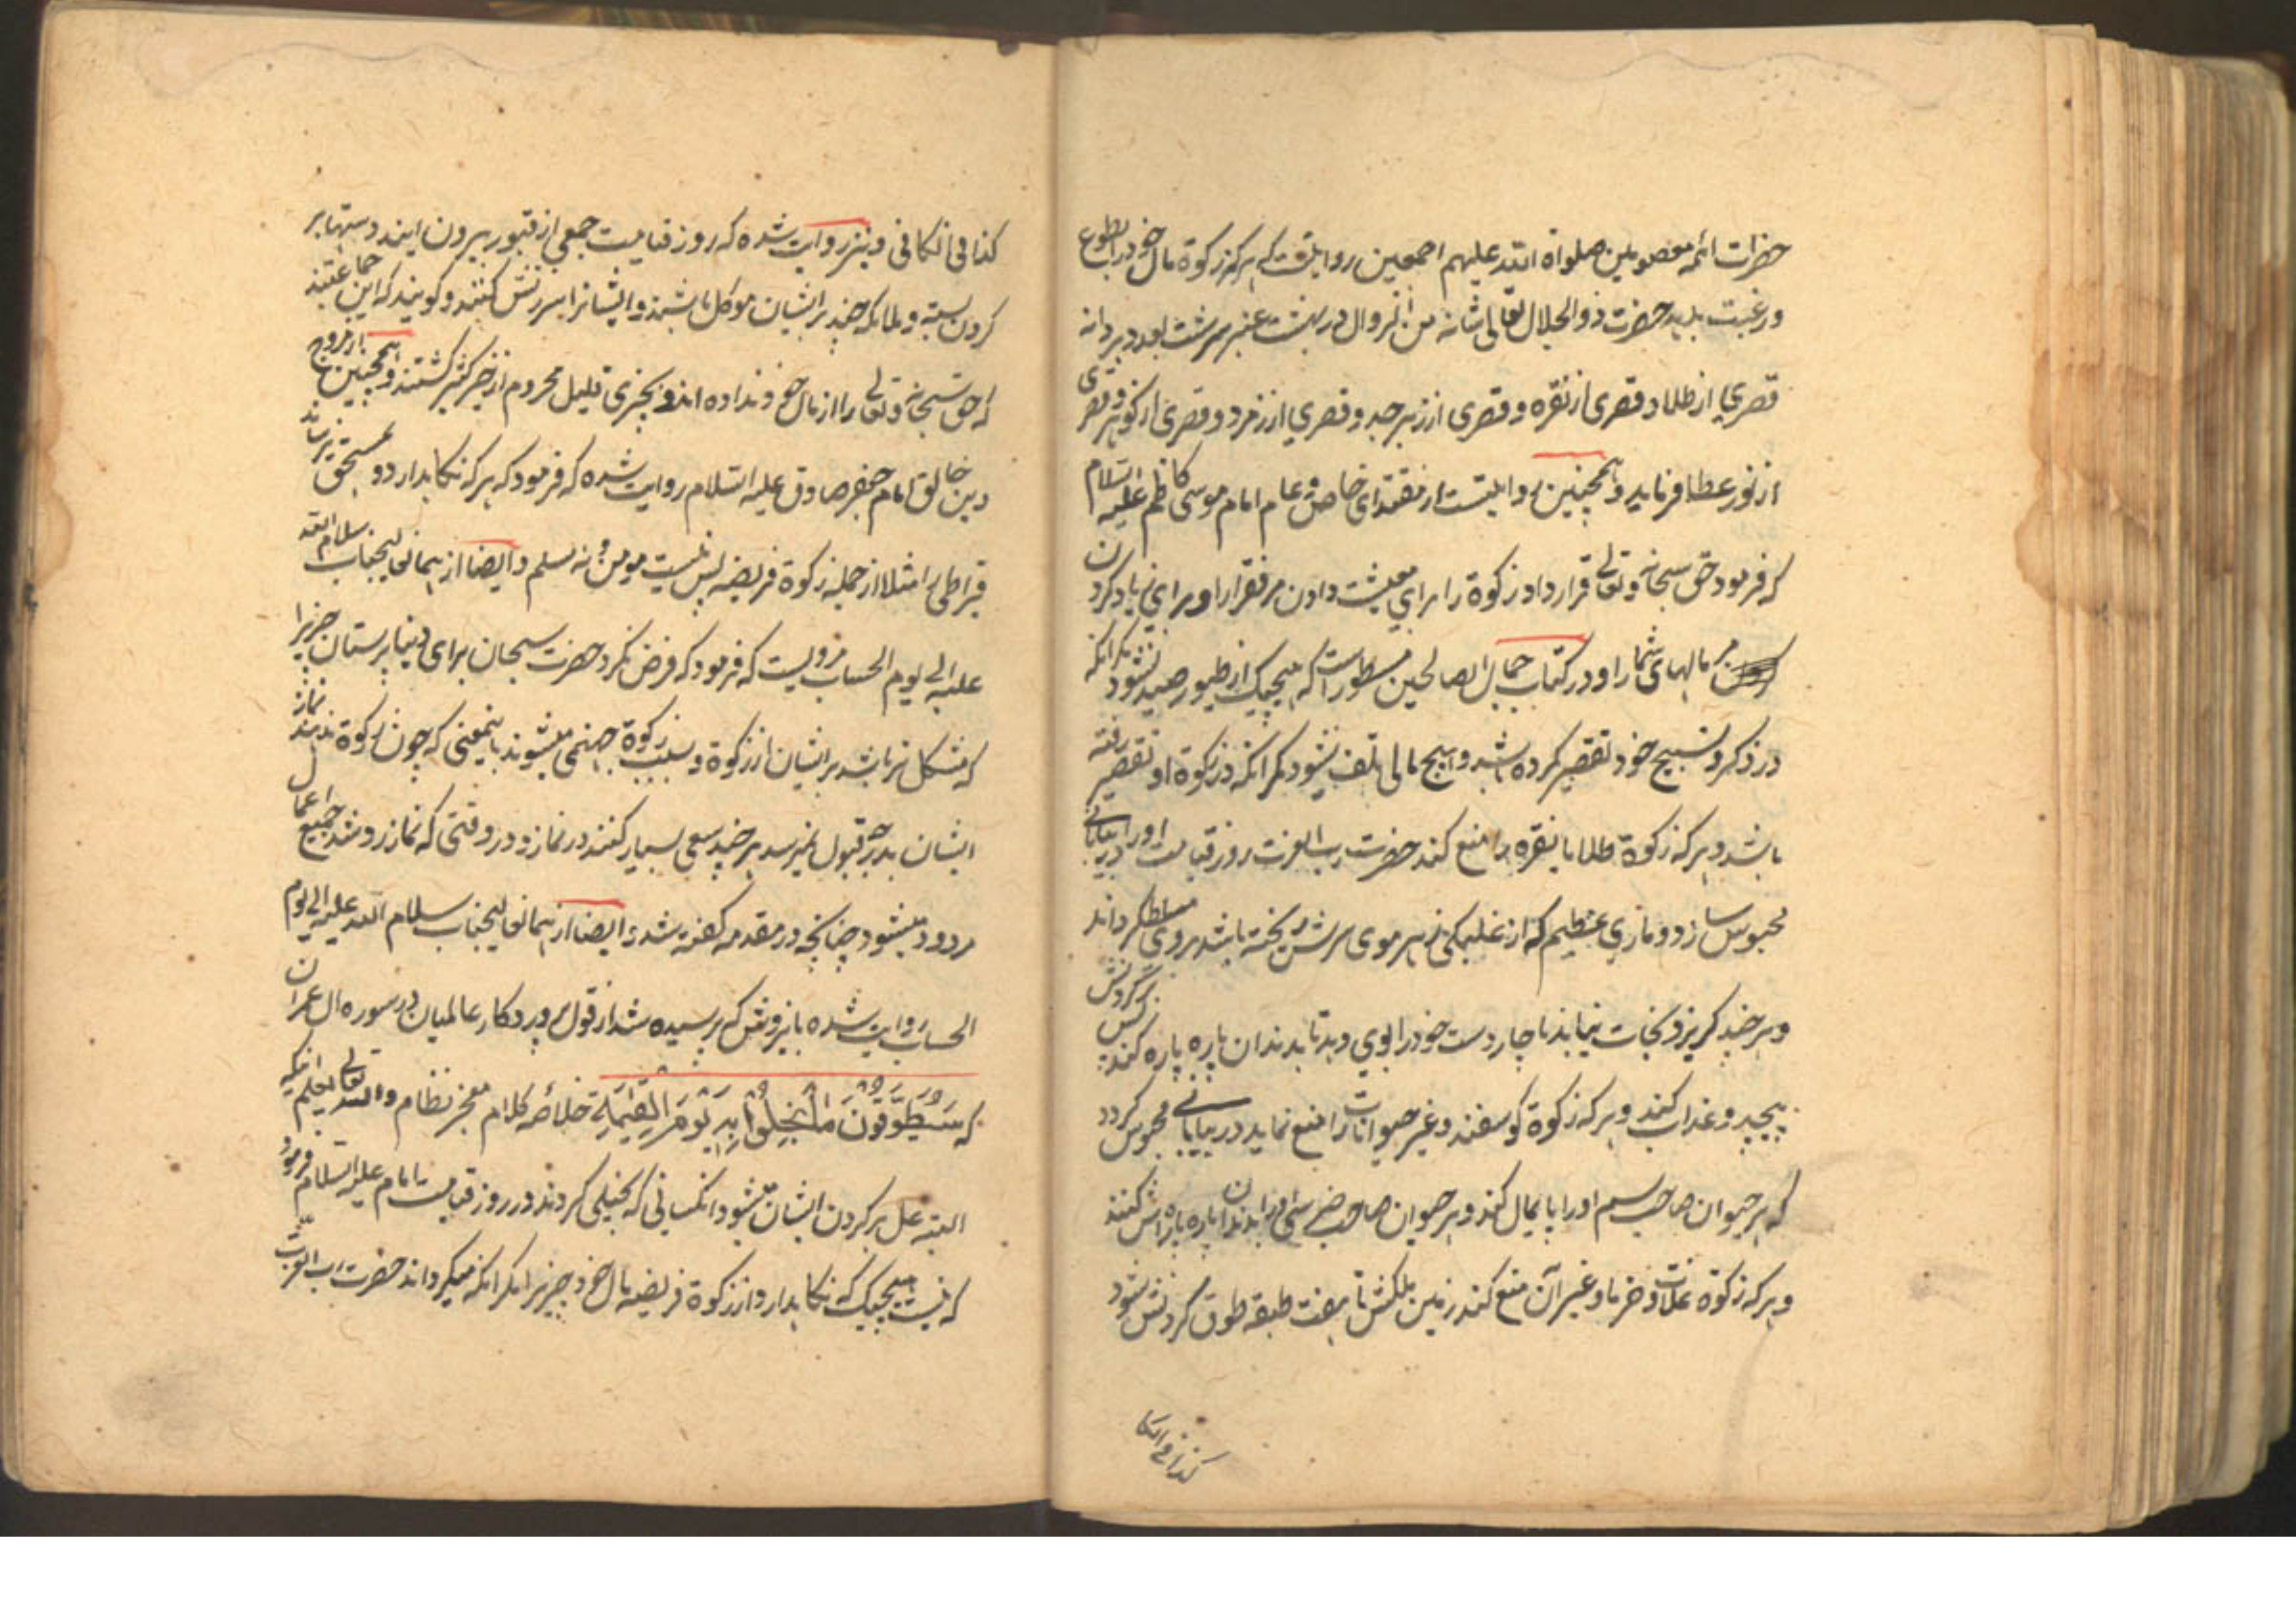 حضرات ائمه معصومین صلواة الله علیهم اجمعین روایتست که هرکه زکوة مال خود را بطوع
و رغبت بدهد حضرت ذوالجلال تعالی شانه من الزوال در بهشت عنبر سرشت بعدد هر دانه
قصری از طلا و قصری از نقره و قصری از زبرجد و قصری از زمرد و قصری از کوهر و قصری
از نور عطا فرماید و همچنین روایتست از مقتدای خاص و عام امام موسی کاظم علیه السلام
که فرمود حق سبحانه و تعالی قرار داد زکوة را برای معیشت دادن مر فقرا را و برای زیاد کردن
مر مالهای شما را و در کتاب جمال الصالحین مسطور است که هیچیک از طیور صید نشود مکر انکه
در ذکر و تسبیح خود تقصیر کرده باشد و هیچ مالی تلف نشود مکر انکه در زکوة او تقصیر رفته
باشد و هرکه زکوة طلا یا نقره را منع کند حضرت رب العزت روز قیامت او را در بیابانی
محبوس سازد و ماری عظیم که از غلبکی زهر موی سرش ریخته باشد بر وی مسلط کرداند
و هر چند کریزد نجات نیابد ناچار دست خود را بوی دهد تا بدندان پاره پاره کند پس کردنش
بپیچد و عذاب کند و هرکه زکوة کوسفند و غیر حیوانات را منع نماید در بیابانی محبوس کردد
که هر حیوان صاحب سم او را پایمال کند و هر حیوان صاحب نیشی او را بدندان پاره پاره اش کنند
و هرکه زکوة غلات و خرما و غیر آن منع کند زمین ملکش تا هفت طبقه طوق کردنش شود
کذا فی الکا
کذا فی الکافی و نیز روایت شده که روز قیامت جمعی از قبور بیرون ایند دستها بر
کردن بسته و ملائکه چند بر ایشان موکل باشند و ایشانرا سرزنش کنند و کویند که این جماعتند
که حق سبحانه و تعالی را از مال خود نداده اند و بچیزی قلیل محروم از خیر کثیر کشتند و همچنین از مروج
دین خالق امام جعفر صادق علیه السلام روایت شده که فرمود که هرکه نکا بدارد و بمستحق نرساند
قیراطی را مثلا از جمله زکوة فریضه پس نیست مومن و نه مسلم و ایضا از همان عالیجناب سلام الله
علیه الی یوم الحساب مرویست که فرمود که فرض نکرد حضرت سبحان برای دنیا پرستان چیزیرا
که مشکل تر باشد بر ایشان از زکوة و بسبب زکوة جهنمی میشوند باینمعنی که چون زکوة ندهند نماز
ایشان بدرجه قبول نمیرسد هر چند سعی بسیار کنند در نماز و در وقتی که نماز رد شد جمیع اعمال
مردود میشود چنانچه در مقدمه کفته شد و ایضا از همان عالیجناب سلام الله علیه الی یوم
الحساب روایت شده باین روش که پرسیده شد از قول پروردکار عالمیان در سوره ال عمران
که سَيُطَوَّقُونَ مَا بَخِلُوا بِهِ يَوْمَ الْقِيَمَةِ خلاصه کلام معجز نظام والله تعالی یعلم اینکه
البته غل بر کردن ایشان میشود انکسانی که بخیلی کردند در روز قیامت امام علیه السلام فرمود
که نیست هیچیک که نکا بدارد از زکوة فریضه مال خود چیزیرا مکر انکه میکرداند حضرت رب العزت